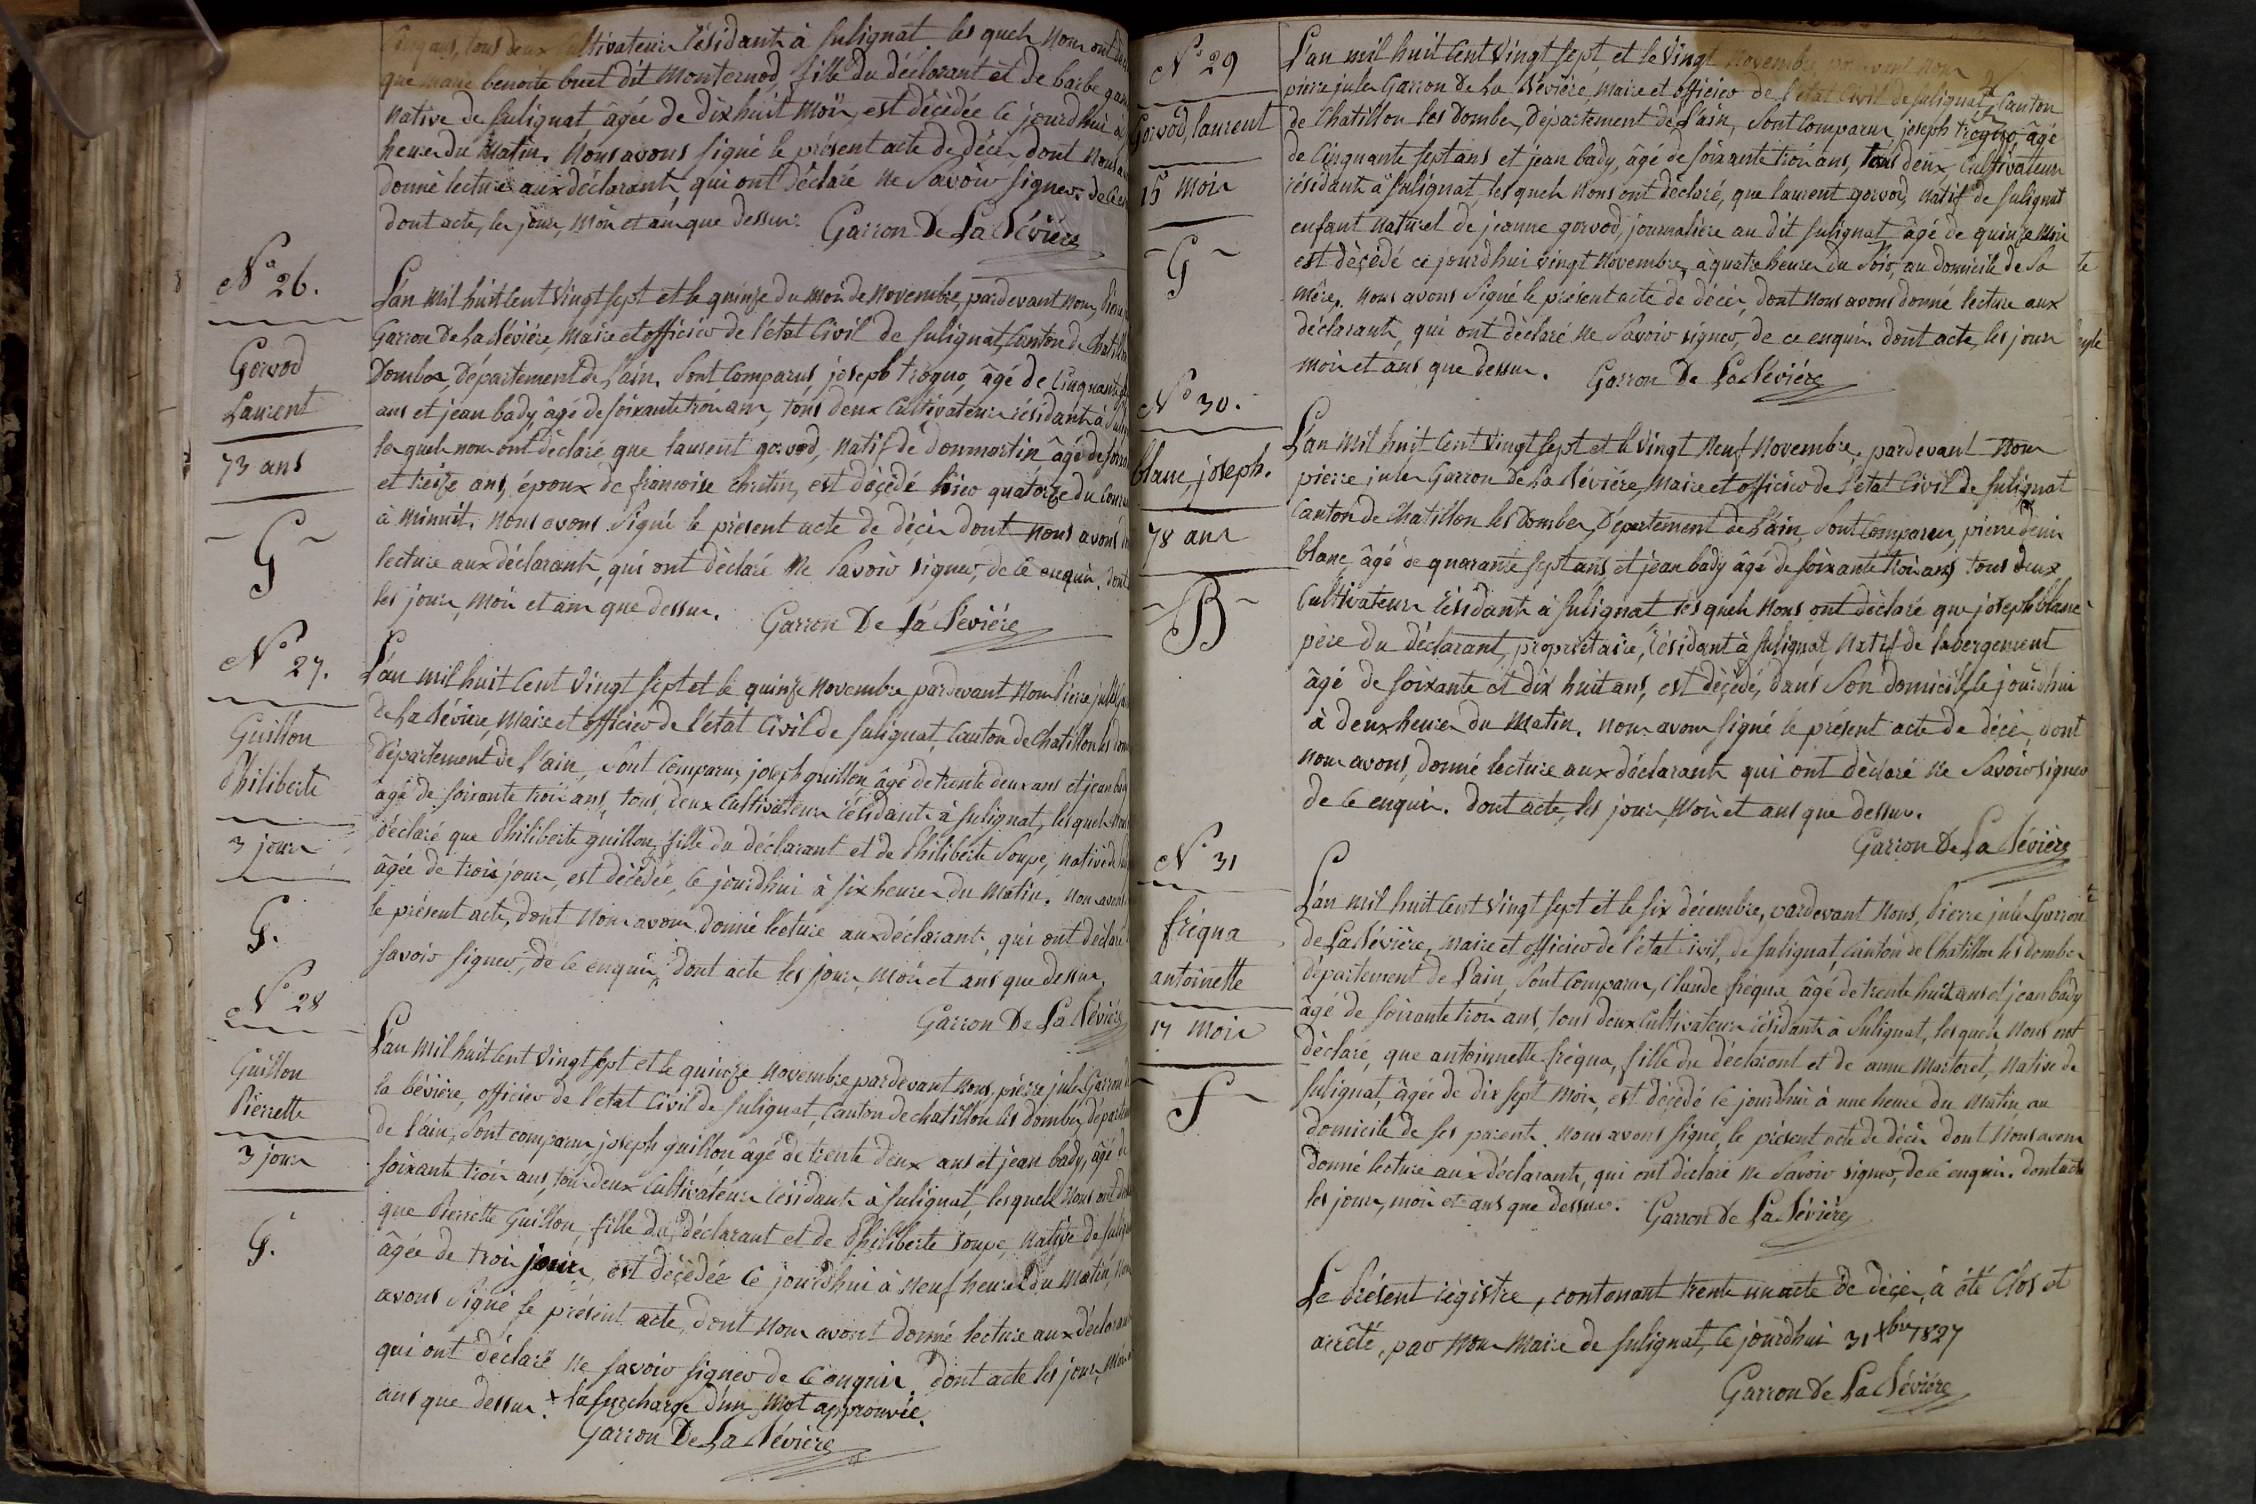 Cinq ans, tous deux Cultivateurs résidants à sulignat les quels nous ont
que marie benoite buet dit Monternod, fille du déclarant et de barbe
native de sulignat âgée de dix huit Mois, est décédée ce jourd'hui à
heures du Matin. Nous avons signé le présent acte de décès, dont nous
donné lecture aux déclarants, qui ont déclaré ne savoir signer, de ce
dont acte, les jour, mois et an que dessus. Garron De La Bévière
N° 26.
Gorvod
Laurent
73 ans
G
L'an mil huit Cent vingt sept et le quinze du mois de Novembre, pardevant nous, Pierre
Garron De La Bévière, Maire et officier de l'état Civil de sulignat, Canton de Chatillon
Dombes, Département de l'ain, sont Comparus joseph trogno, âgé de Cinquante
ans et jean bady, âgé de soixante trois ans, tous deux Cultivateurs résidants à
les quels nous ont déclaré que laurent gorvod, natif de dommartin âgé de
et treize ans, époux de francoise Chritin, est décédé hier quatorze du
à minuit. Nous avons signé le présent acte de décès dont nous avons
lecture aux déclarants, qui ont déclaré ne savoir signer, de ce enquis. dont
les jour, mois et an que dessus. Garron De La Bévière
N° 27.
Guillon
Philiberte
3 jours
G.
L'an mil huit Cent vingt sept et le quinze Novembre pardevant nous Pierre jules
de La Bévière, Maire et officier de l'état Civil de sulignat, Canton de Chatillon les
Département de l'ain, sont Comparus joseph guillon, âgé de trente deux ans et jean bady
âgé de soixante trois ans, tous deux Cultivateurs résidants à sulignat, les quels
déclaré que Philiberte guillon, fille du déclarant et de Philiberte Soupe, native de
âgée de trois jours, est décédée, ce jourd'hui à six heures du Matin. Nous avons
le présent acte, dont Nous avons donné lecture aux déclarants qui ont déclaré
savoir signer, de ce enquis, dont acte les jour, mois et ans que dessus.
Garron De La Bévière
N° 28
Guillon
Pierrette
3 jours
G.
L'an mil huit Cent vingt sept et le quinze Novembre pardevant Nous, pierre jules Garron
la bévière, officier de l'état Civil de sulignat, Canton de chatillon les dombes,
de l'ain, sont comparus, joseph guillon âgé de trente deux ans et jean bady, âgé de
soixante trois ans, tous deux Cultivateurs résidants à sulignat, lesquels Nous ont
que Pierrette Guillon, fille du déclarant et de Philiberte soupe, native de
âgée de trois jours, est décédée ce jourd'hui à Neuf heures du matin,
avons signé le présent acte, dont Nous avons donné lecture aux
qui ont déclaré ne savoir signer de ce enquis. dont acte les jour,
ans que dessus. x La surcharge d'un Mot approuvée.
Garron De La Bévière
N° 29
Gorvod, laurent
15 mois
G
L'an mil huit Cent vingt sept, et le vingt Novembre, pardevant nous
pierre jules Garron De La Bévière, Maire et officier de l'état Civil de sulignat, Canton
de Chatillon les Dombes, Département de l'ain, sont Comparus joseph trogno, âgé
de Cinquante sept ans et jean bady, âgé de soixante trois ans, tous deux, Cultivateurs
résidants à sulignat, les quels nous ont déclaré, que laurent gorvod, natif de sulignat
enfant naturel de jeanne gorvod, journalière au dit sulignat âgé de quinze Mois
est décédé ce jourd'hui vingt Novembre, à quatre heures du soir, au domicile de sa
mère. Nous avons signé le présent acte de décès, dont nous avons donné lecture aux
déclarants, qui ont déclaré ne savoir signer, de ce enquis. dont acte, les jour
mois et ans que dessus. Garron De La Bévière
N° 30.
blanc, joseph.
78 ans
B
L'an mil huit Cent vingt sept et le vingt Neuf Novembre, pardevant Nous
pierre jules Garron De La Bévière, Maire et officier de l'état Civil de sulignat
Canton de Chatillon les Dombes, Département de l'ain, sont Comparus, pierre denis
blanc, âgé de quarante sept ans et jean bady âgé de soixante trois ans, tous deux
Cultivateurs résidants à sulignat les quels Nous ont déclaré que joseph blanc
père du déclarant, propriétaire, résidant à sulignat Natif de labergement
âgé de soixante et dix huit ans, est décédé, dans son domicile, ce jourd'hui
à deux heures du Matin. nous avons signé le présent acte de décès, dont
nous avons donné lecture aux déclarants qui ont déclaré ne savoir signer
de ce enquis. Dont acte, les jour, Mois et ans que dessus.
Garron De La Bévière
N° 31
frégna
antoinette
17 mois
F
L'an mil huit Cent vingt sept et le six décembre, pardevant Nous, Pierre jules Garron
de La Bévière, maire et officier de l'état civil, de sulignat, Canton de Chatillon les dombes
département de l'ain, sont Comparus, Claude frégna âgé de trente huit ans et jean bady
âgé de soixante trois ans, tous deux Cultivateurs résidants à sulignat, les quels Nous ont
déclaré, que antoinette frégna, fille du déclarant et de anne Martoret, Native de
sulignat, âgée de dix sept Mois, est décédé ce jourd'hui à une heure du Matin au
domicile de ses parents. Nous avons signé, le présent acte de décès dont Nous avons
donné lecture aux déclarants, qui ont déclaré ne savoir signer, de ce enquis. Dont acte
les jour, mois et ans que dessus. Garron De La Bévière
Le Présent régistre, contenant trente un acte de décès, à été Clos et
arrêté, par Nous Maire de sulignat, ce jourd'hui 31 Xbre 1827
Garron De La Bévière